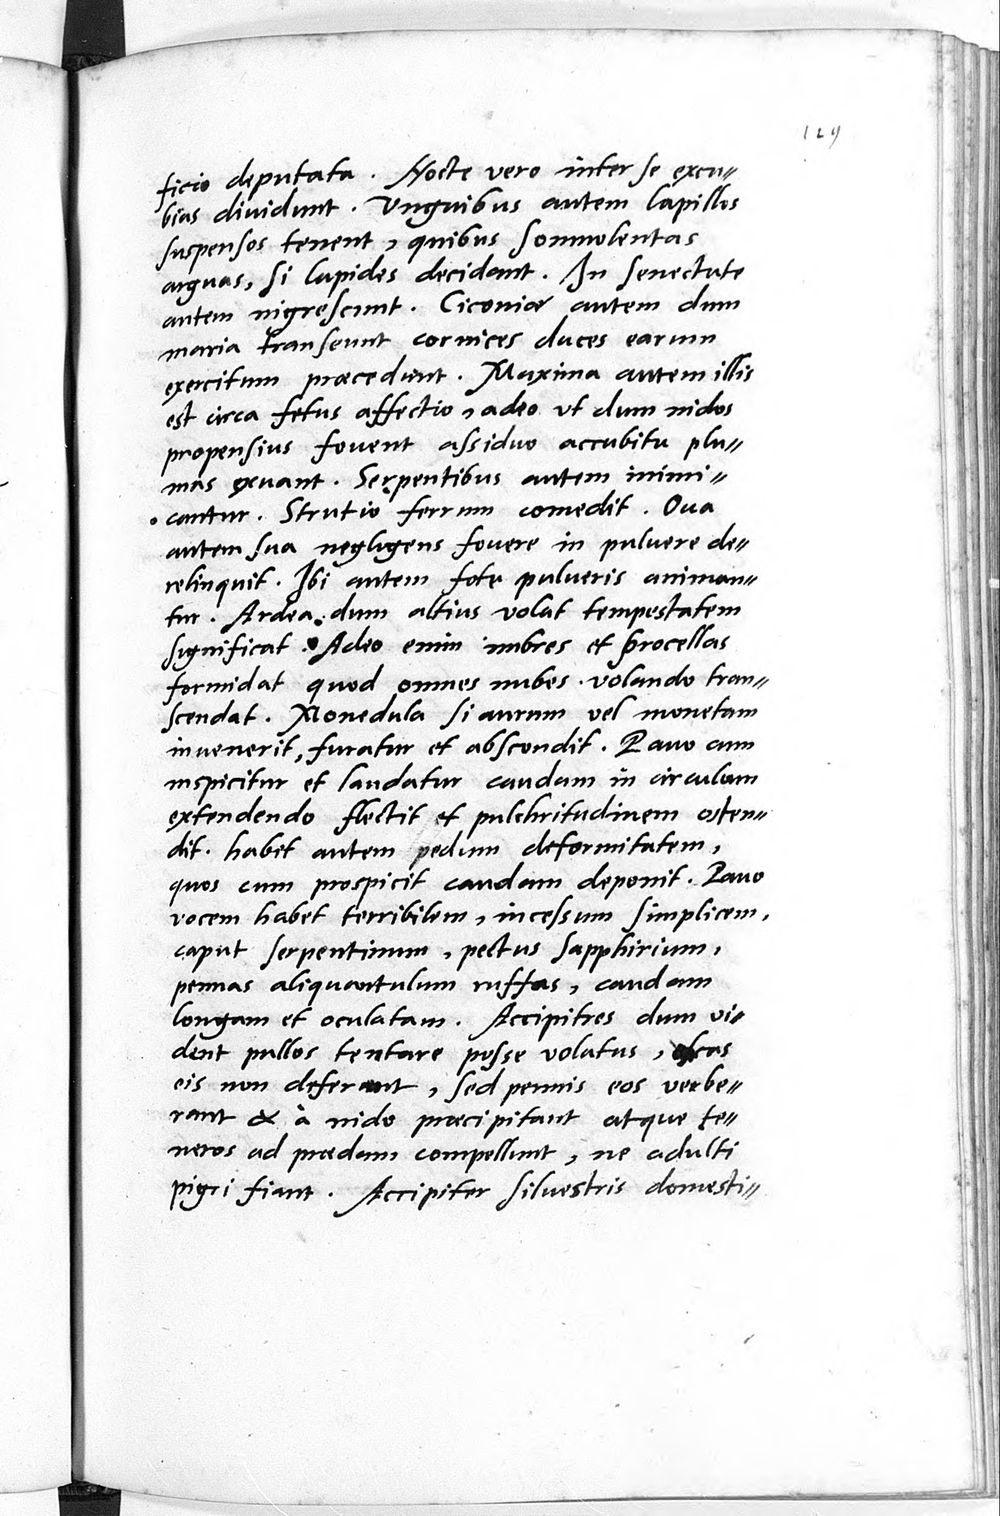 129
ficio deputata . Nocte vero inter se excu〃
bias diuidunt . Vnguibus autem lapillos
suspensos tenent , quibus somnolentas
arguas, si lapides decidant . In senectute
autem nigrescunt . Ciconiæ autem dum
maria transeunt cornices duces earum
exercitum præcedunt . Maxima autem illis
est circa fetus affectio , adeo vt dum nidos
propensius fouent assiduo accubitu plu〃
mas exuant . Serpentibus autem inimi〃
cantur . Strutio ferrum comedit . Oua
autem sua negligens fouere in puluere de〃
relinquit . Ibi autem fotu pulueris animan〃
tur . Ardea dum altius volat tempestatem
significat . Adeo enim imbres et procellas
formidat quod omnes nubes volando tran〃
scendat . Monedula si aurum vel monetam
inuenerit, furatur et abscondit . Pauo cum
inspicitur et laudatur caudam in circulum
extendendo flectit et pulchritudinem osten〃
dit . habet autem pedum deformitatem ,
quos cum prospicit caudam deponit . Pauo
vocem habet terribilem , incessum simplicem ,
caput serpentinum , pectus sapphirium ,
pennas aliquantulum ruffas , caudam
longam et oculatam . Accipitres dum vi〃
dent pullos tentare posse volatus , escas
eis non deferunt , sed pennis eos verbe〃
rant & à nido præcipitant atque te〃
neros ad prædam compellunt , ne adulti
pigri fiant . Accipiter siluestris domesti〃